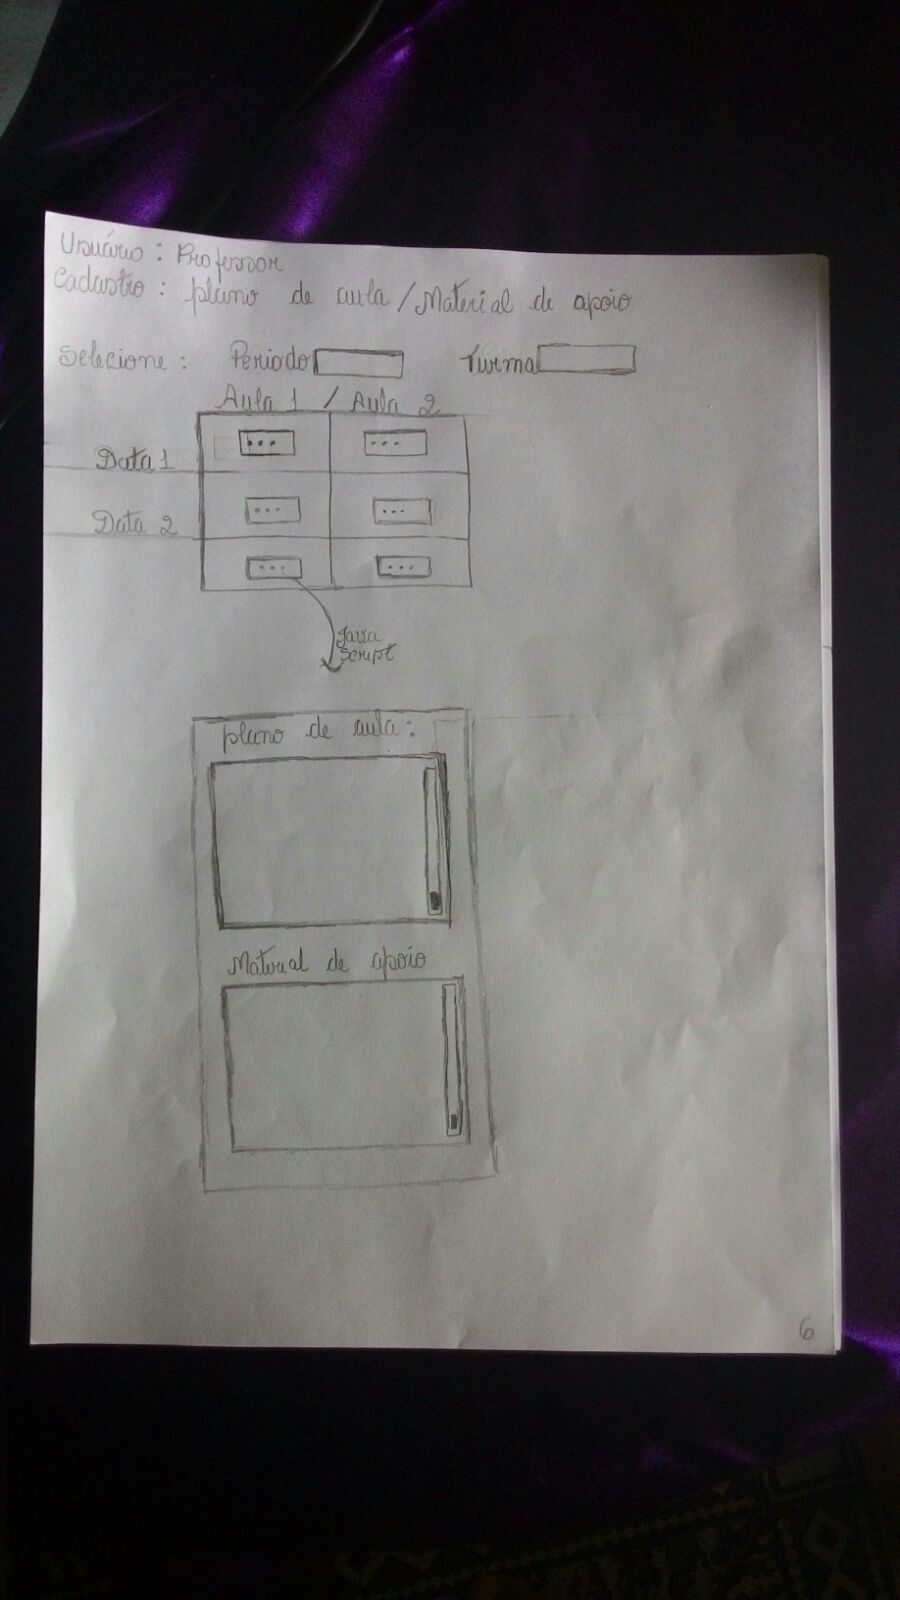 Usuário : Professor
Cadastro : plano de aula / Material de apoio
Selecione : Periodo Turma
Aula 1 / Aula 2
... ...
Data 1
... ...
Data 2
... ...
Java
Script
plano de aula :
Material de apoio
6